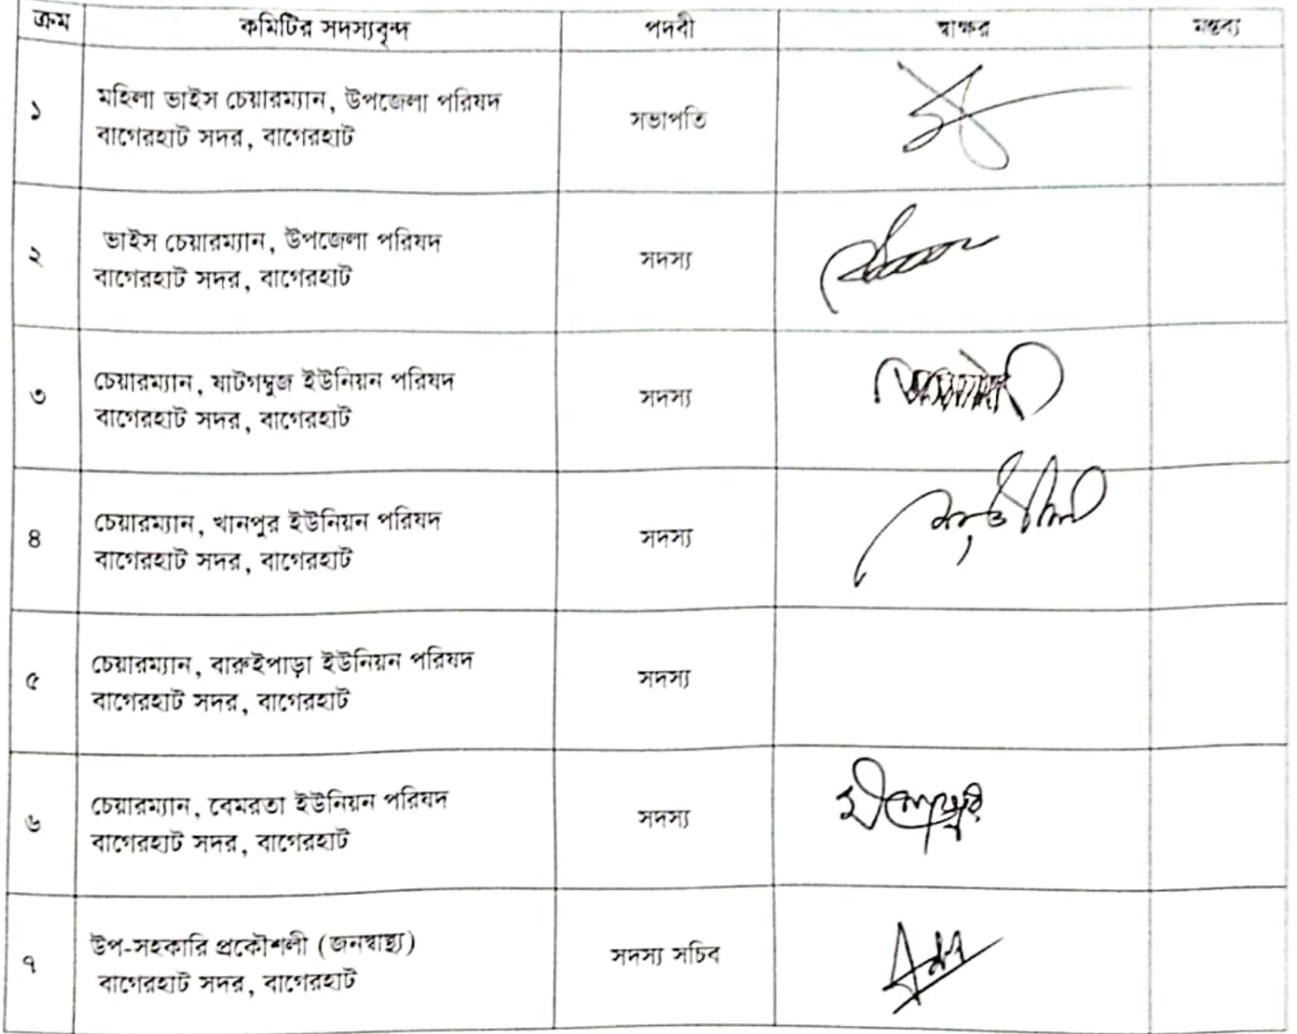 ক্রম কমিটির সদস্যবৃন্দ পদবী স্বাক্ষর মন্তব্য
১ মহিলা ভাইস চেয়ারম্যান, উপজেলা পরিষদ
বাগেরহাট সদর, বাগেরহাট সভাপতি
২ ভাইস চেয়ারম্যান, উপজেলা পরিষদ
বাগেরহাট সদর, বাগেরহাট সদস্য
৩ চেয়ারম্যান, ষাটগম্বুজ ইউনিয়ন পরিষদ
বাগেরহাট সদর, বাগেরহাট সদস্য
৪ চেয়ারম্যান, খানপুর ইউনিয়ন পরিষদ
বাগেরহাট সদর, বাগেরহাট সদস্য
৫ চেয়ারম্যান, বারুইপাড়া ইউনিয়ন পরিষদ
বাগেরহাট সদর, বাগেরহাট সদস্য
৬ চেয়ারম্যান, বেমরতা ইউনিয়ন পরিষদ
বাগেরহাট সদর, বাগেরহাট সদস্য
৭ উপ-সহকারি প্রকৌশলী (জনস্বাস্থ্য)
বাগেরহাট সদর, বাগেরহাট সদস্য সচিব